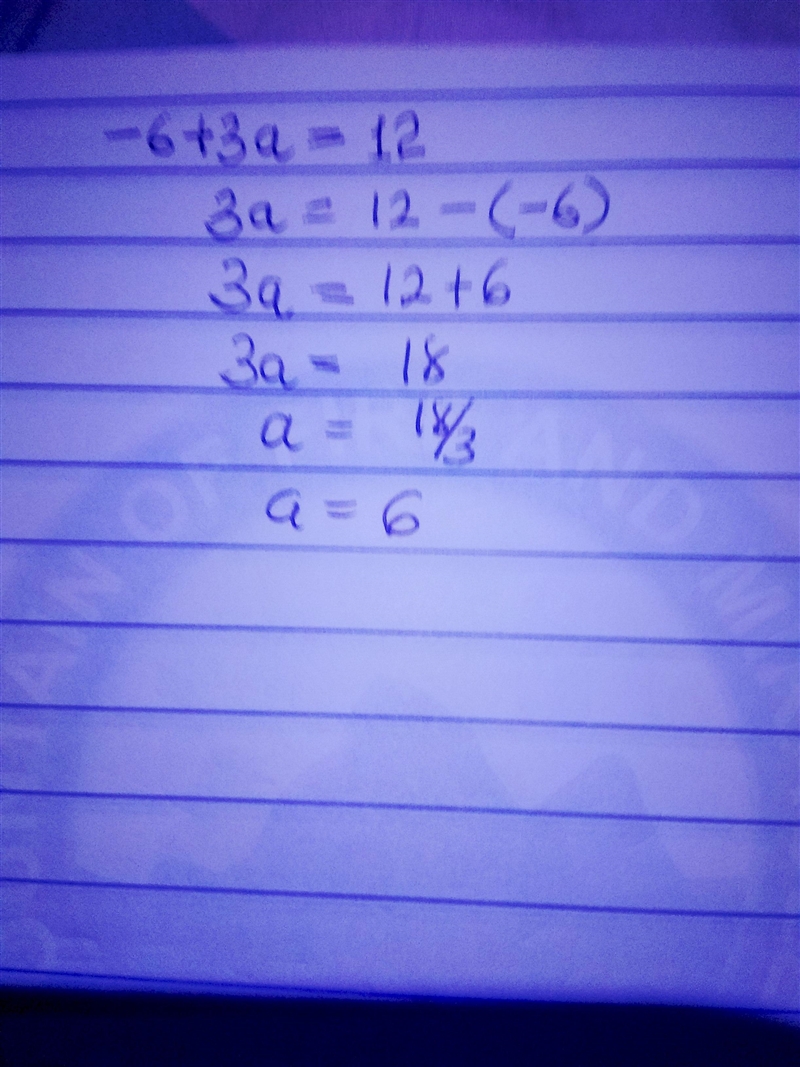 -6+3a = 12
3a = 12-(-6)
3a = 12+6
3a = 18
a = 18/3
a = 6